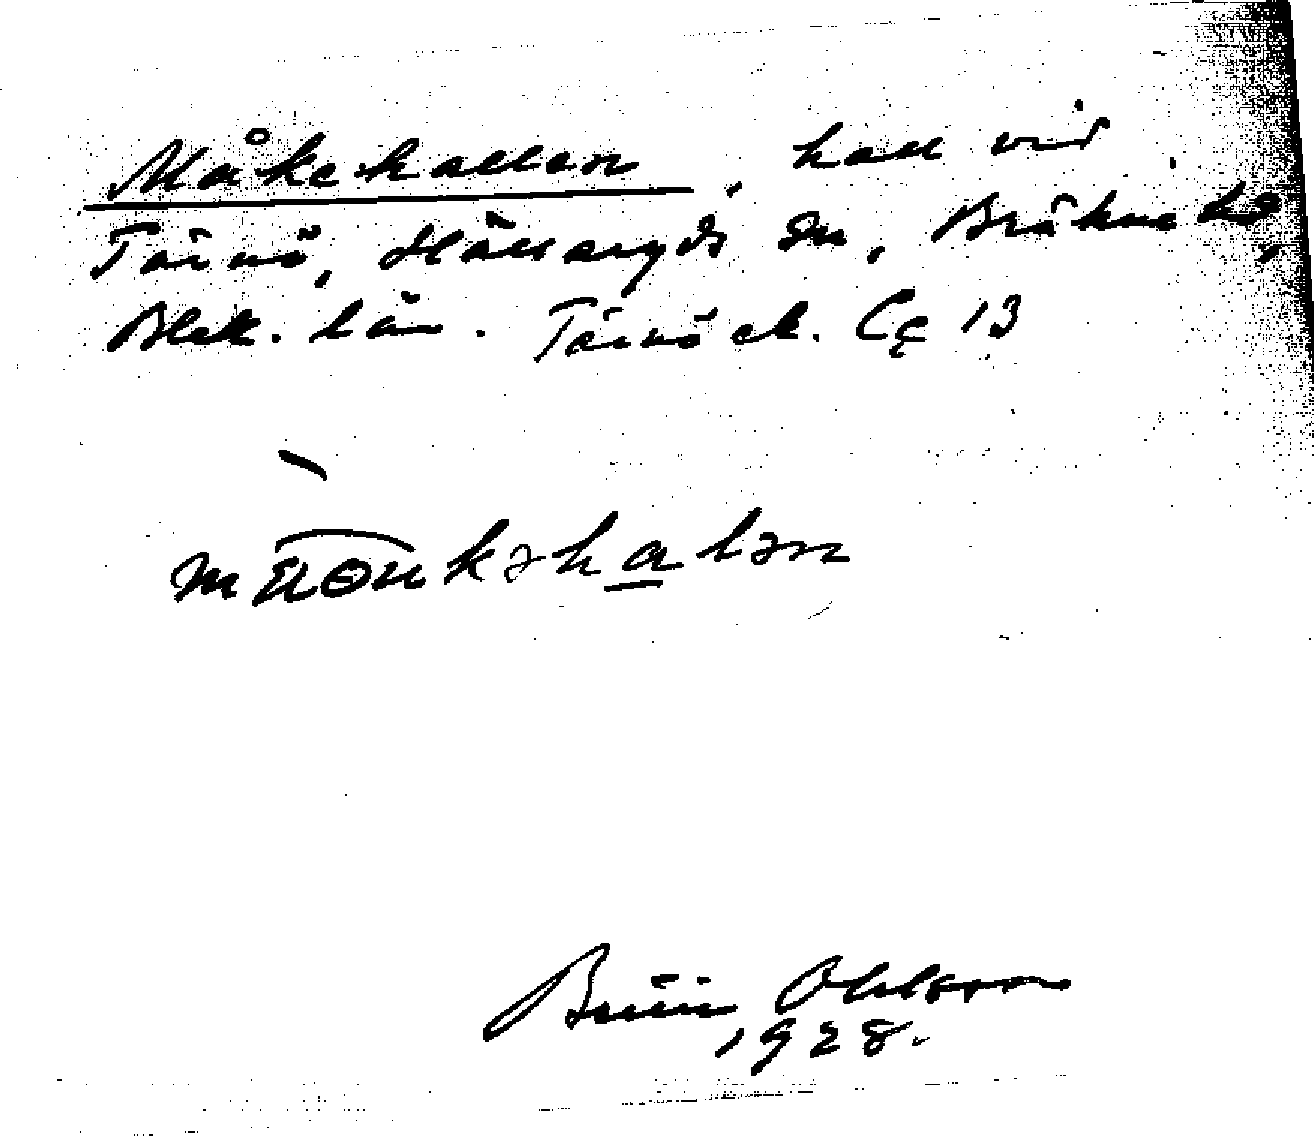 Måkehallen, hall vid
Tärnö, Hällaryds sn, Bräkne hd,
Blek. län. Tärnö ek. Cc 13
kəhalən
Brior Ohlsson
1928.